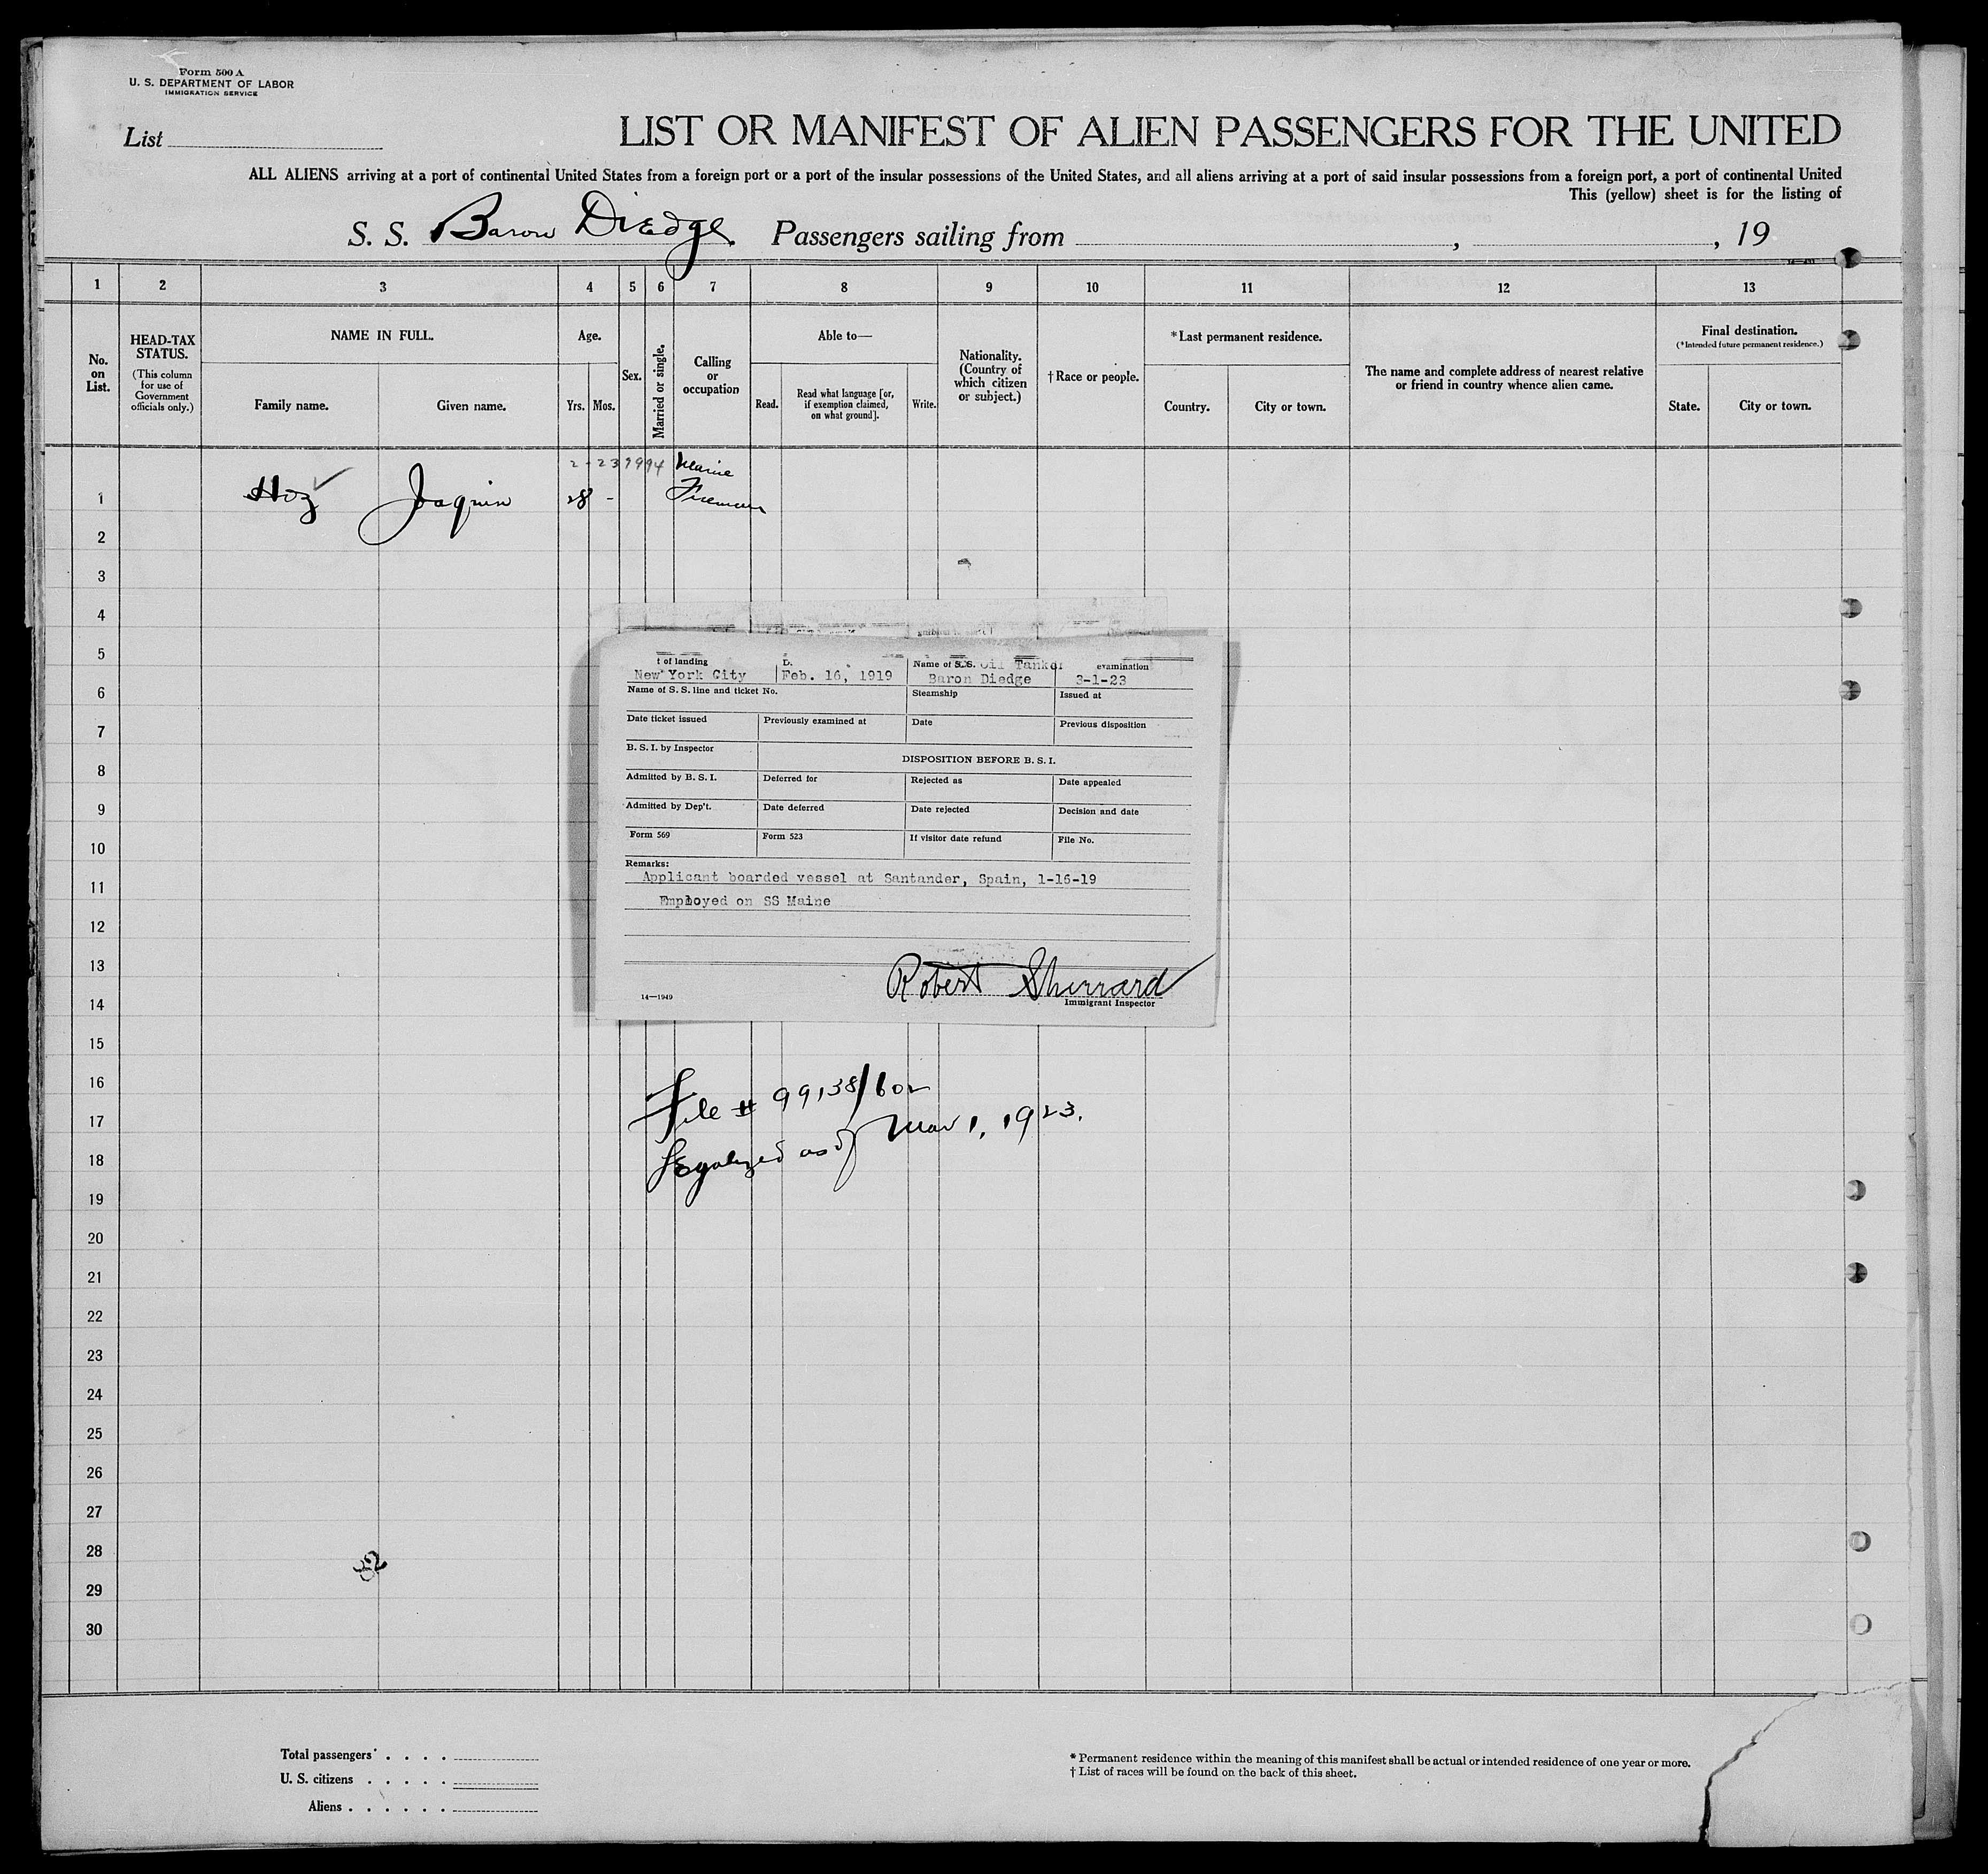 Form 500 A
U. S. DEPARTMENT OF LABOR
IMMIGRATION SERVICE
List
LIST OR MANIFEST OF ALIEN PASSENGERS FOR THE UNITED
ALL ALIENS arriving at a port of continental United States from a foreign port or a port of the insular possessions of the United States, and all aliens arriving at a port of said insular possessions from a foreign port, a port of continental United
This (yellow) sheet is for the listing of
S. S. Baron Diedge Passengers sailing from , , 19
1 2 3 4 5 6 7 8 9 10 11 12 13
No. on List.
HEAD-TAX STATUS.
(This column for use of Government officials only.)
NAME IN FULL.
Family name. Given name.
Age.
Yrs. Mos.
Sex.
Married or single.
Calling or occupation
Able to—
Read. Read what language [or, if exemption claimed, on what ground]. Write.
Nationality. (Country of which citizen or subject.)
†Race or people.
*Last permanent residence.
Country. City or town.
The name and complete address of nearest relative or friend in country whence alien came.
Final destination.
(*Intended future permanent residence.)
State. City or town.
Marine
1 Hoz Joaquin 28 - Fireman
2
3
4
5
6
7
8
9
10
11
12
13
14
15
16
17
18
19
20
21
22
23
24
25
26
27
28
29
30
t of landing D. Name of S.S. Oil Tanker examination
New York City Feb. 16, 1919 Baron Diedge 3-1-23
Name of S. S. line and ticket No. Steamship Issued at
Date ticket issued Previously examined at Date Previous disposition
B. S. I. by Inspector DISPOSITION BEFORE B. S. I.
Admitted by B. S. I. Deferred for Rejected as Date appealed
Admitted by Dep't. Date deferred Date rejected Decision and date
Form 569 Form 523 If visitor date refund File No.
Remarks:
Applicant boarded vessel at Santander, Spain, 1-16-19
Employed on SS Maine
Robert Sherrard
14—1949 Immigrant Inspector
File # 99138/602
Legalized as of Mar 1, 1923.
Total passengers
U. S. citizens
Aliens
* Permanent residence within the meaning of this manifest shall be actual or intended residence of one year or more.
† List of races will be found on the back of this sheet.